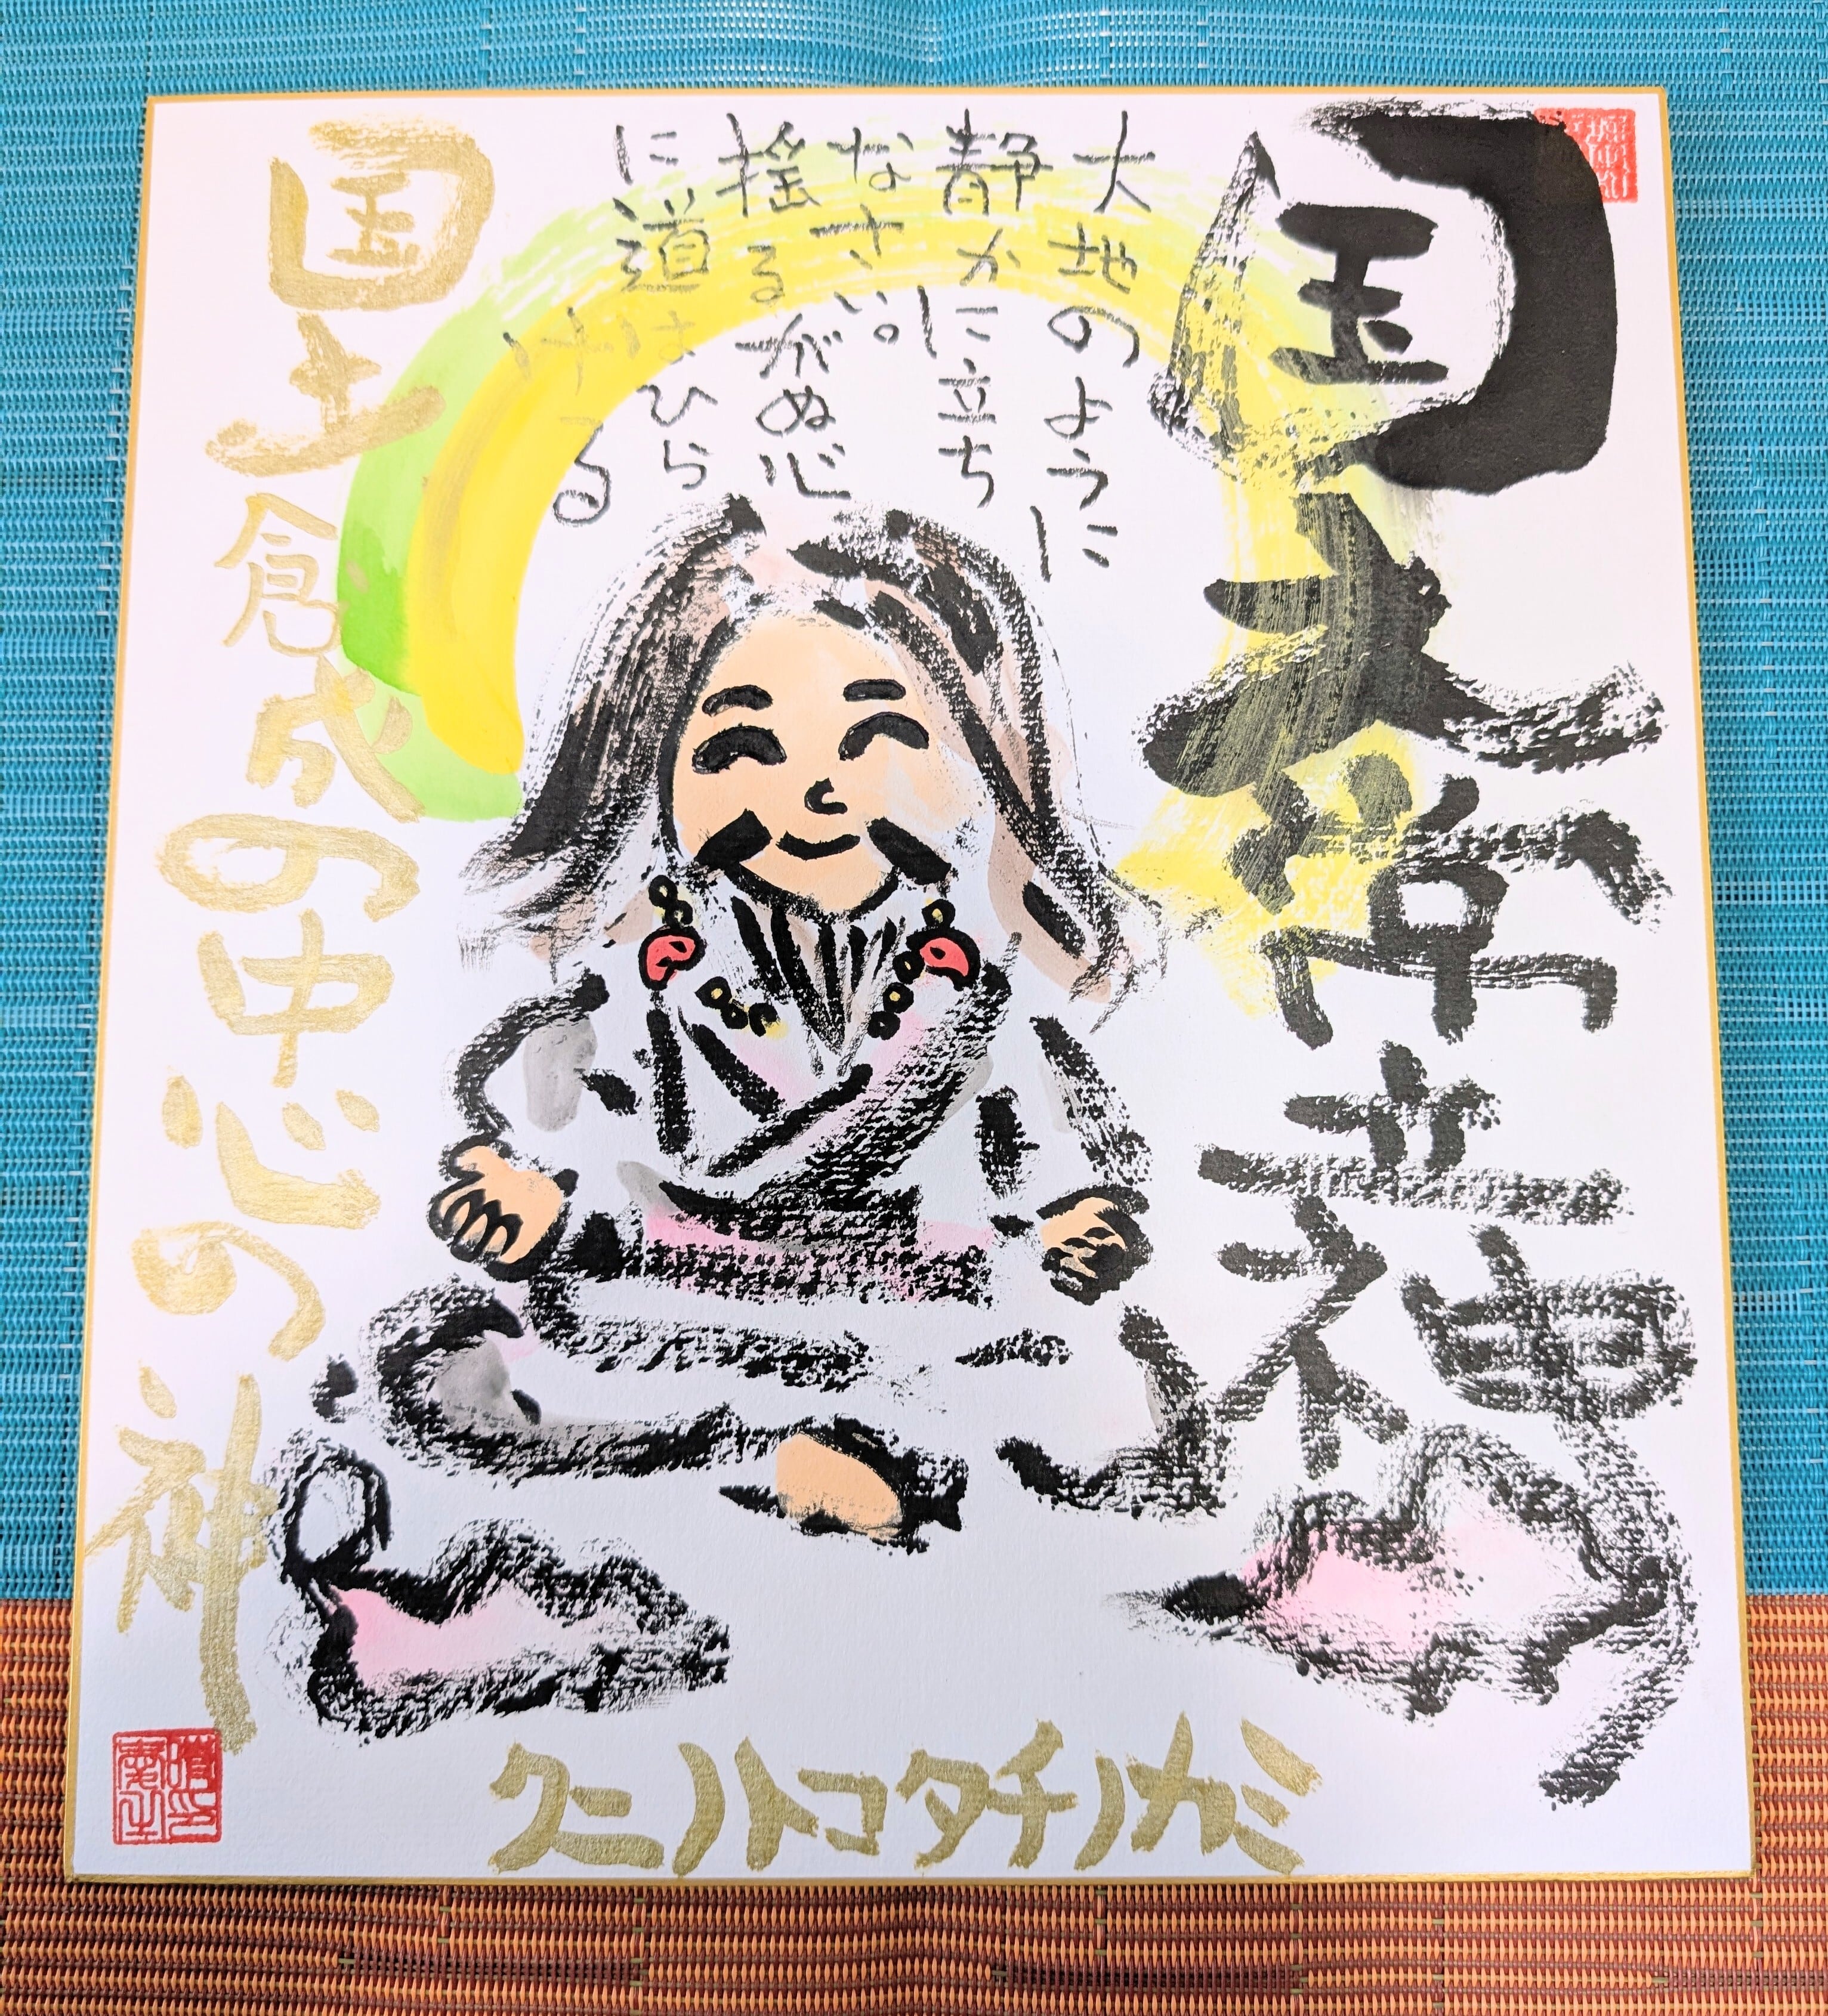 国之常立神
大地のように
静かに立ち
なさい。
揺るがぬ心
に道はひら
ける
国土倉成の中心の神
クニノトコタチノカミ